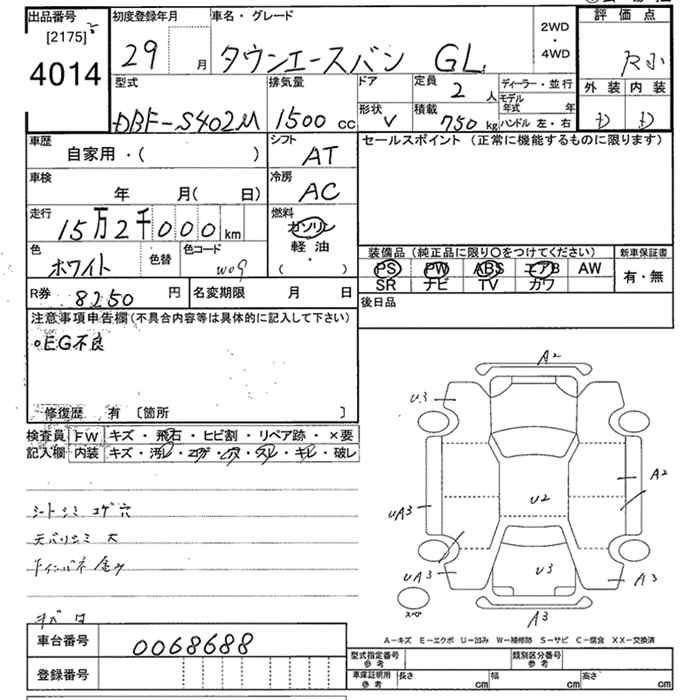 出品番号 [2175]
4014
初度登録年月 29 月
車名・グレード タウンエースバン GL
2WD
・
4WD
評価点
R
外装 内装
D D
型式 DBF-S402M
排気量 1500 cc
ドア
形状 V
定員 2 人
積載 750 kg
ディーラー・並行
モデル年式 年
ハンドル 左・右
車歴 自家用・( )
シフト AT
車検 年 月( 日)
冷房 AC
走行 15万2千000 km
燃料 ガソリン
軽油
( ・ )
色 ホワイト
色替
色コード W09
R券 8250 円
名変期限 月 日
セールスポイント (正常に機能するものに限ります)
装備品 (純正品に限り〇をつけてください)
PS PW ABS エアB AW
SR ナビ TV カワ
新車保証書
有・無
後日品
注意事項申告欄 (不具合内容等は具体的に記入して下さい)
○EG不良
修復歴 有 [箇所 ]
検査員 FW キズ・飛石・ヒビ割・リペア跡・×要
記入欄 内装 キズ・汚レ・コゲ・穴・スレ・キレ・破レ
シートシミ コゲ穴
天バリシミ 大
A2
U3
A2
U2
UA3
UA3
U3
A3
A3
スペア
A-キズ E-エクボ U-凹み W-補修跡 S-サビ C-腐食 XX-交換済
車台番号 0068688
登録番号
型式指定番号 参考
類別区分番号 参考
車庫証明用 参考 長さ cm 幅 cm 高さ cm